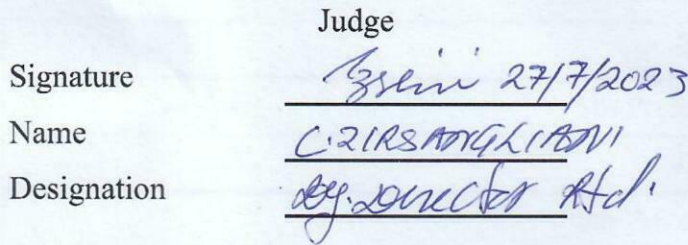 Judge
Signature 27/7/2023
Name C. ZIRSANGLIANI
Designation Dy. Director Rtd.